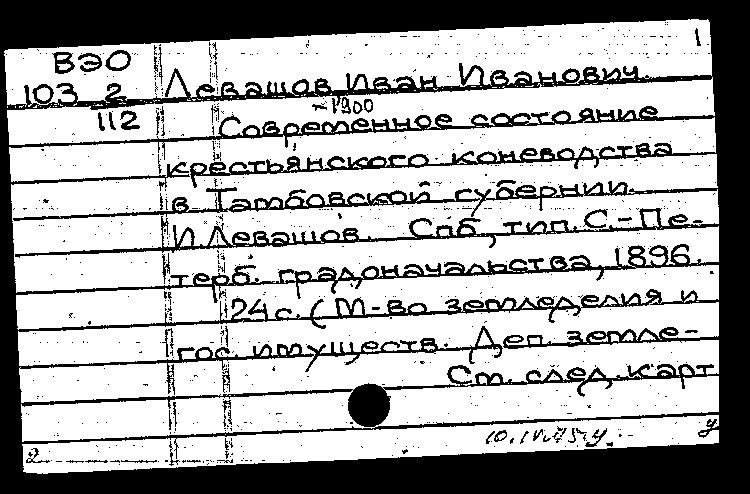 1
ВЭО
103 2 Левашов Иван Иванович.
112 ~1900
Современное состояние
крестьянского коневодства
в Тамбовской губернии.
И. Левашов. Спб, тип. С.-Пе-
терб. градоначальства, 1896.
24 с. (М-во земледелия и
гос. имуществ. Деп. земле-
См. след. карт
2 у